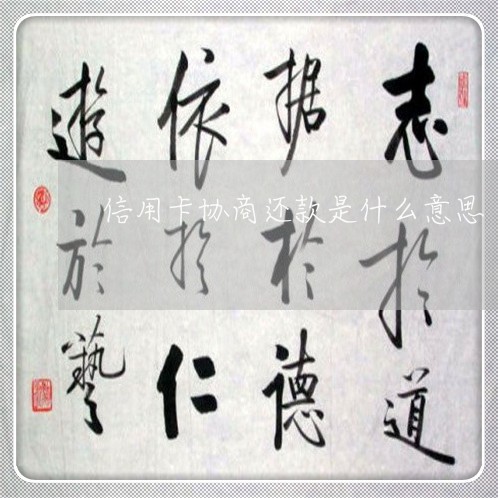 志於道
据於德
依於仁
遊於藝
信用卡协商还款是什么意思